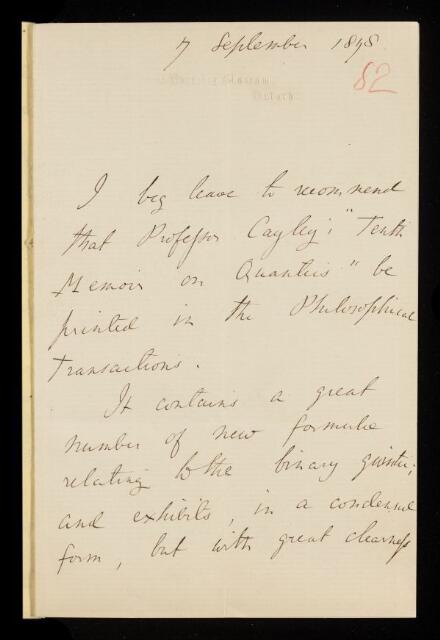 7 September 1878.
82
I beg leave to recommend
that Professor Cayley's "Tenth
Memoir on Quantics" be
printed in the Philosophical
Transactions.
It contains a great
number of new formulae
relating to the binary quintic;
and exhibits, in a condensed
form, but with great clearness